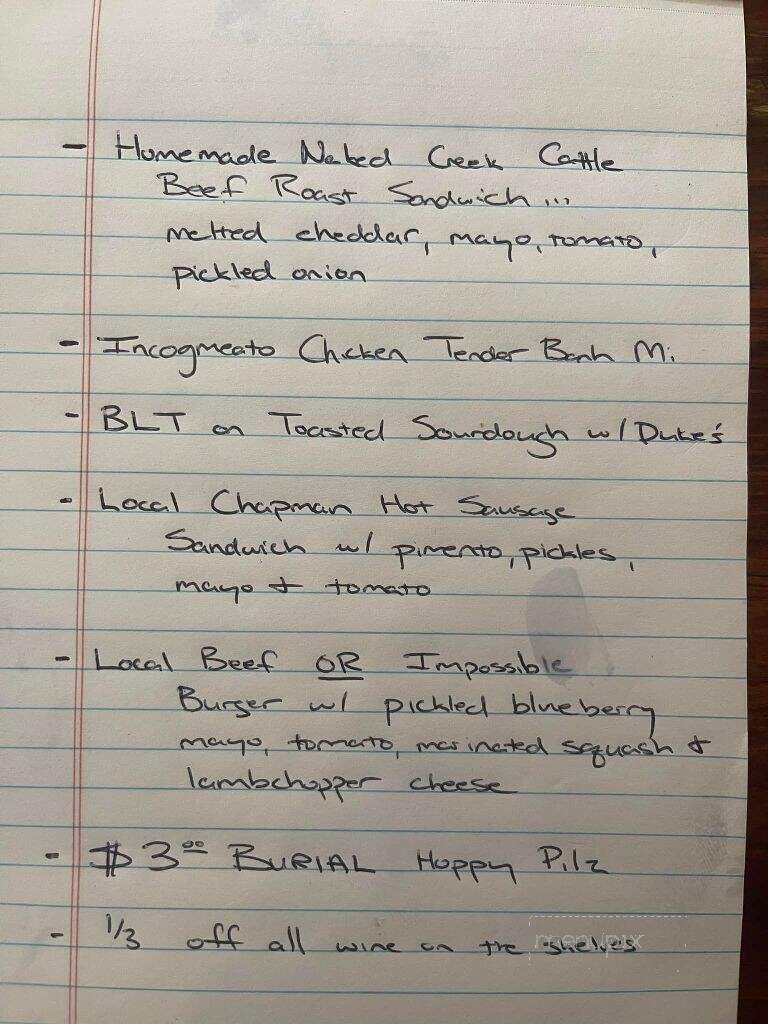 - Homemade Naked Creek Cattle
Beef Roast Sandwich...
melted cheddar, mayo, tomato,
pickled onion
- Incogmeato Chicken Tender Banh Mi
- BLT on Toasted Sourdough w/ Duke's
- Local Chapman Hot Sausage
Sandwich w/ pimento, pickles,
mayo & tomato
- Local Beef OR Impossible
Burger w/ pickled blueberry
mayo, tomato, marinated squash &
lambchopper cheese
- $3.00 BURIAL Hoppy Pilz
- 1/3 off all wine on the shelves
menupix